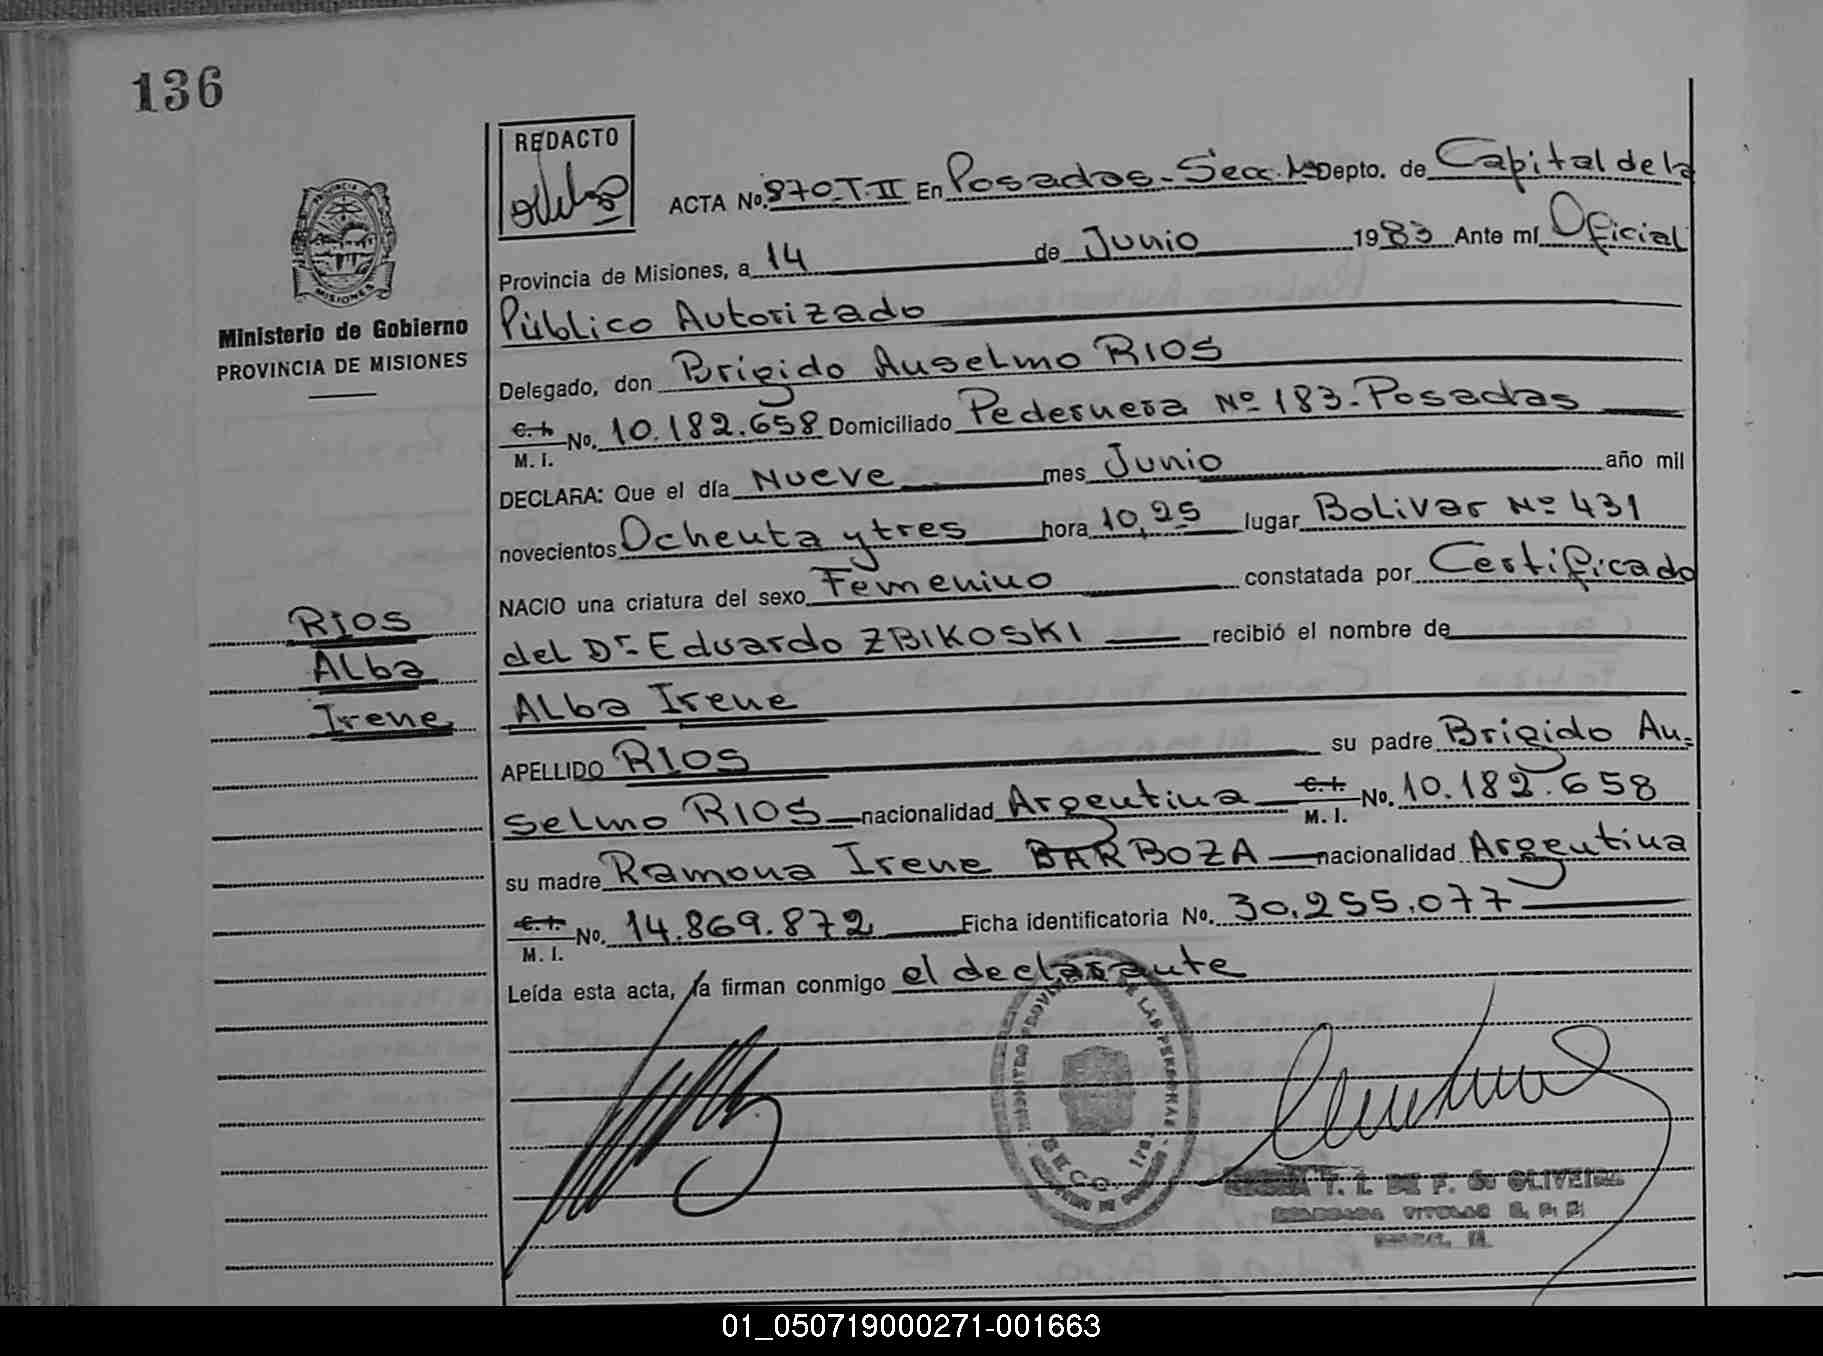 136
REDACTO
ACTA No. 870-T-II En Posadas-Secc. 1ª Depto. de Capital de la
Provincia de Misiones, a 14 de Junio 1983 Ante mí Oficial
Público Autorizado
MISIONES
Ministerio de Gobierno
PROVINCIA DE MISIONES
Delegado, don Brígido Anselmo RIOS
C. I. M. I. No. 10.182.658 Domiciliado Pedernera Nº 183-Posadas
DECLARA: Que el día Nueve mes Junio año mil
novecientos Ochenta y tres hora 10,25 lugar Bolivar Nº 431
NACIO una criatura del sexo Femenino constatada por Certificado
del Dr. Eduardo ZBIKOSKI recibió el nombre de
Alba Irene
APELLIDO RIOS su padre Brígido An=
selmo RIOS nacionalidad Argentina C. I. M. I. No. 10.182.658
su madre Ramona Irene BARBOZA nacionalidad Argentina
C. I. M. I. No. 14.869.872 Ficha identificatoria No. 30.255.077
Leída esta acta, la firman conmigo el declarante
Rios
Alba
Irene
DE LAS PERSONAS
SECC.
T. I. DE F. DE OLIVEIRA
TITULAR
01_050719000271-001663